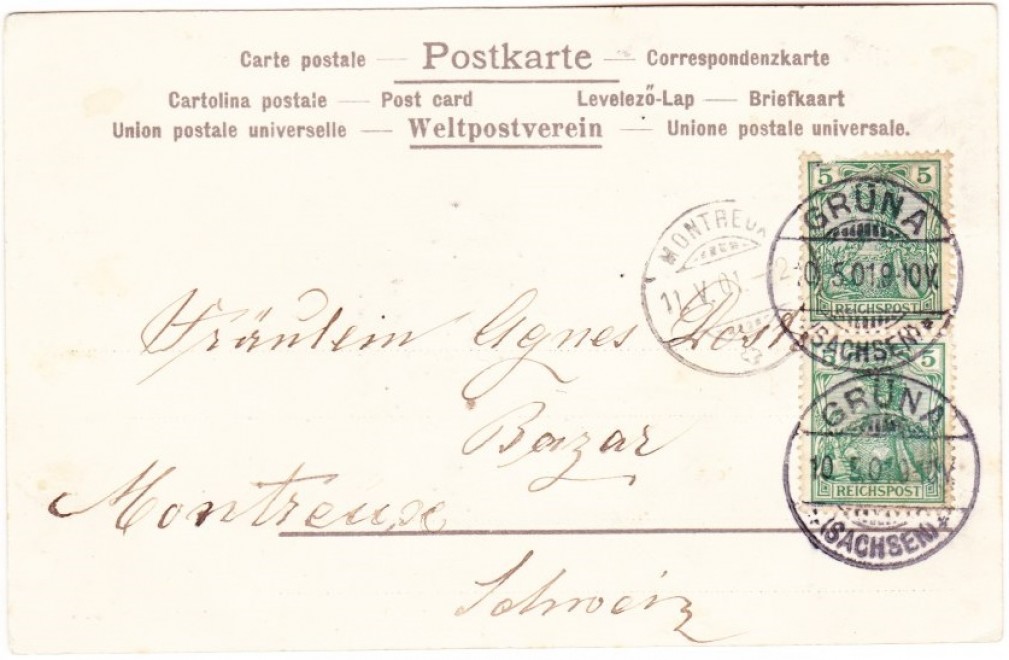 Carte postale — Postkarte — Correspondenzkarte
Cartolina postale — Post card Levelező-Lap — Briefkaart
Union postale universelle — Weltpostverein — Unione postale universale.
5 5
GRÜNA
10. 5.01.9-10V.
REICHSPOST
(SACHSEN)*
MONTREUX
11.V.01
Fräulein Agnes Dost
5
GRÜNA
10. 5.0
REICHSPOST
(SACHSEN)*
Bazar
Montreux
Schweiz